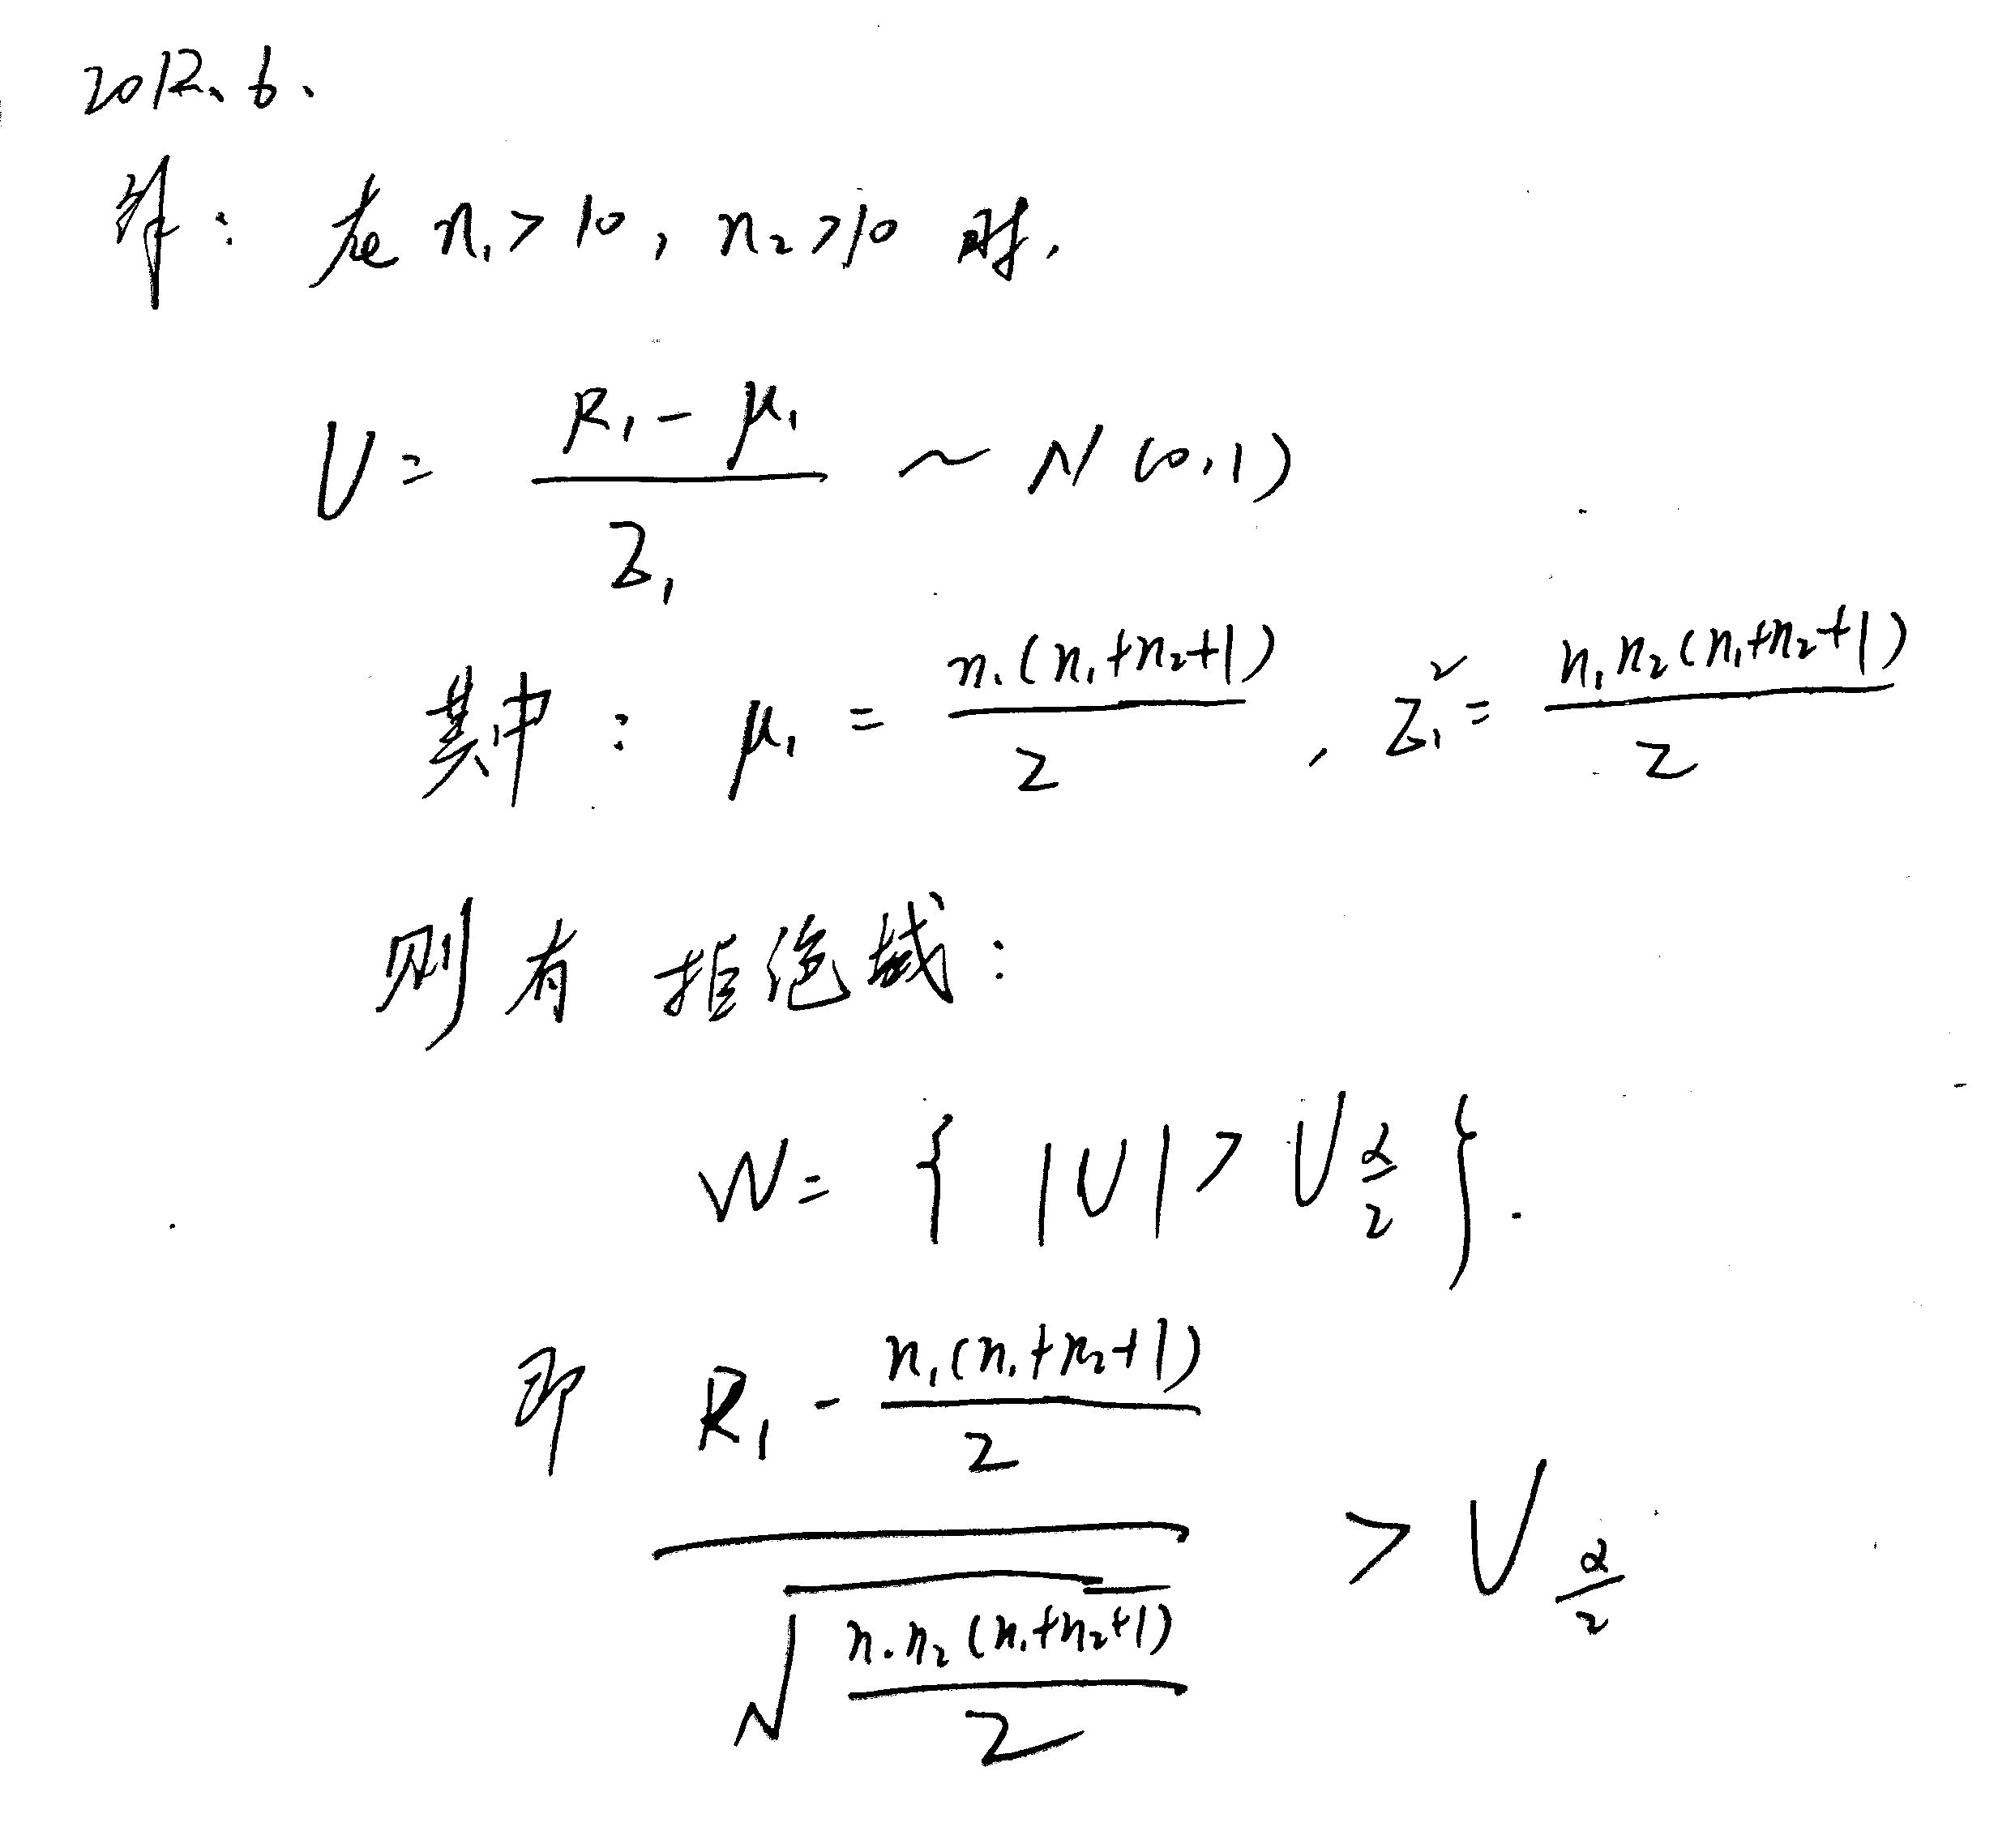 2012.6.
解：在 n₁>10，n₂>10 时，
U = \frac{R₁-μ₁}{Z₁} ~ N(0,1)
其中：μ₁ = \frac{n₁(n₁+n₂+1)}{2}，Z₁² = \frac{n₁n₂(n₁+n₂+1)}{2}
则有 拒绝域：
W = { |U| > U_{\frac{α}{2}} }.
即 \frac{R₁ - \frac{n₁(n₁+n₂+1)}{2}}{\sqrt{\frac{n₁n₂(n₁+n₂+1)}{2}}} > U_{\frac{α}{2}}